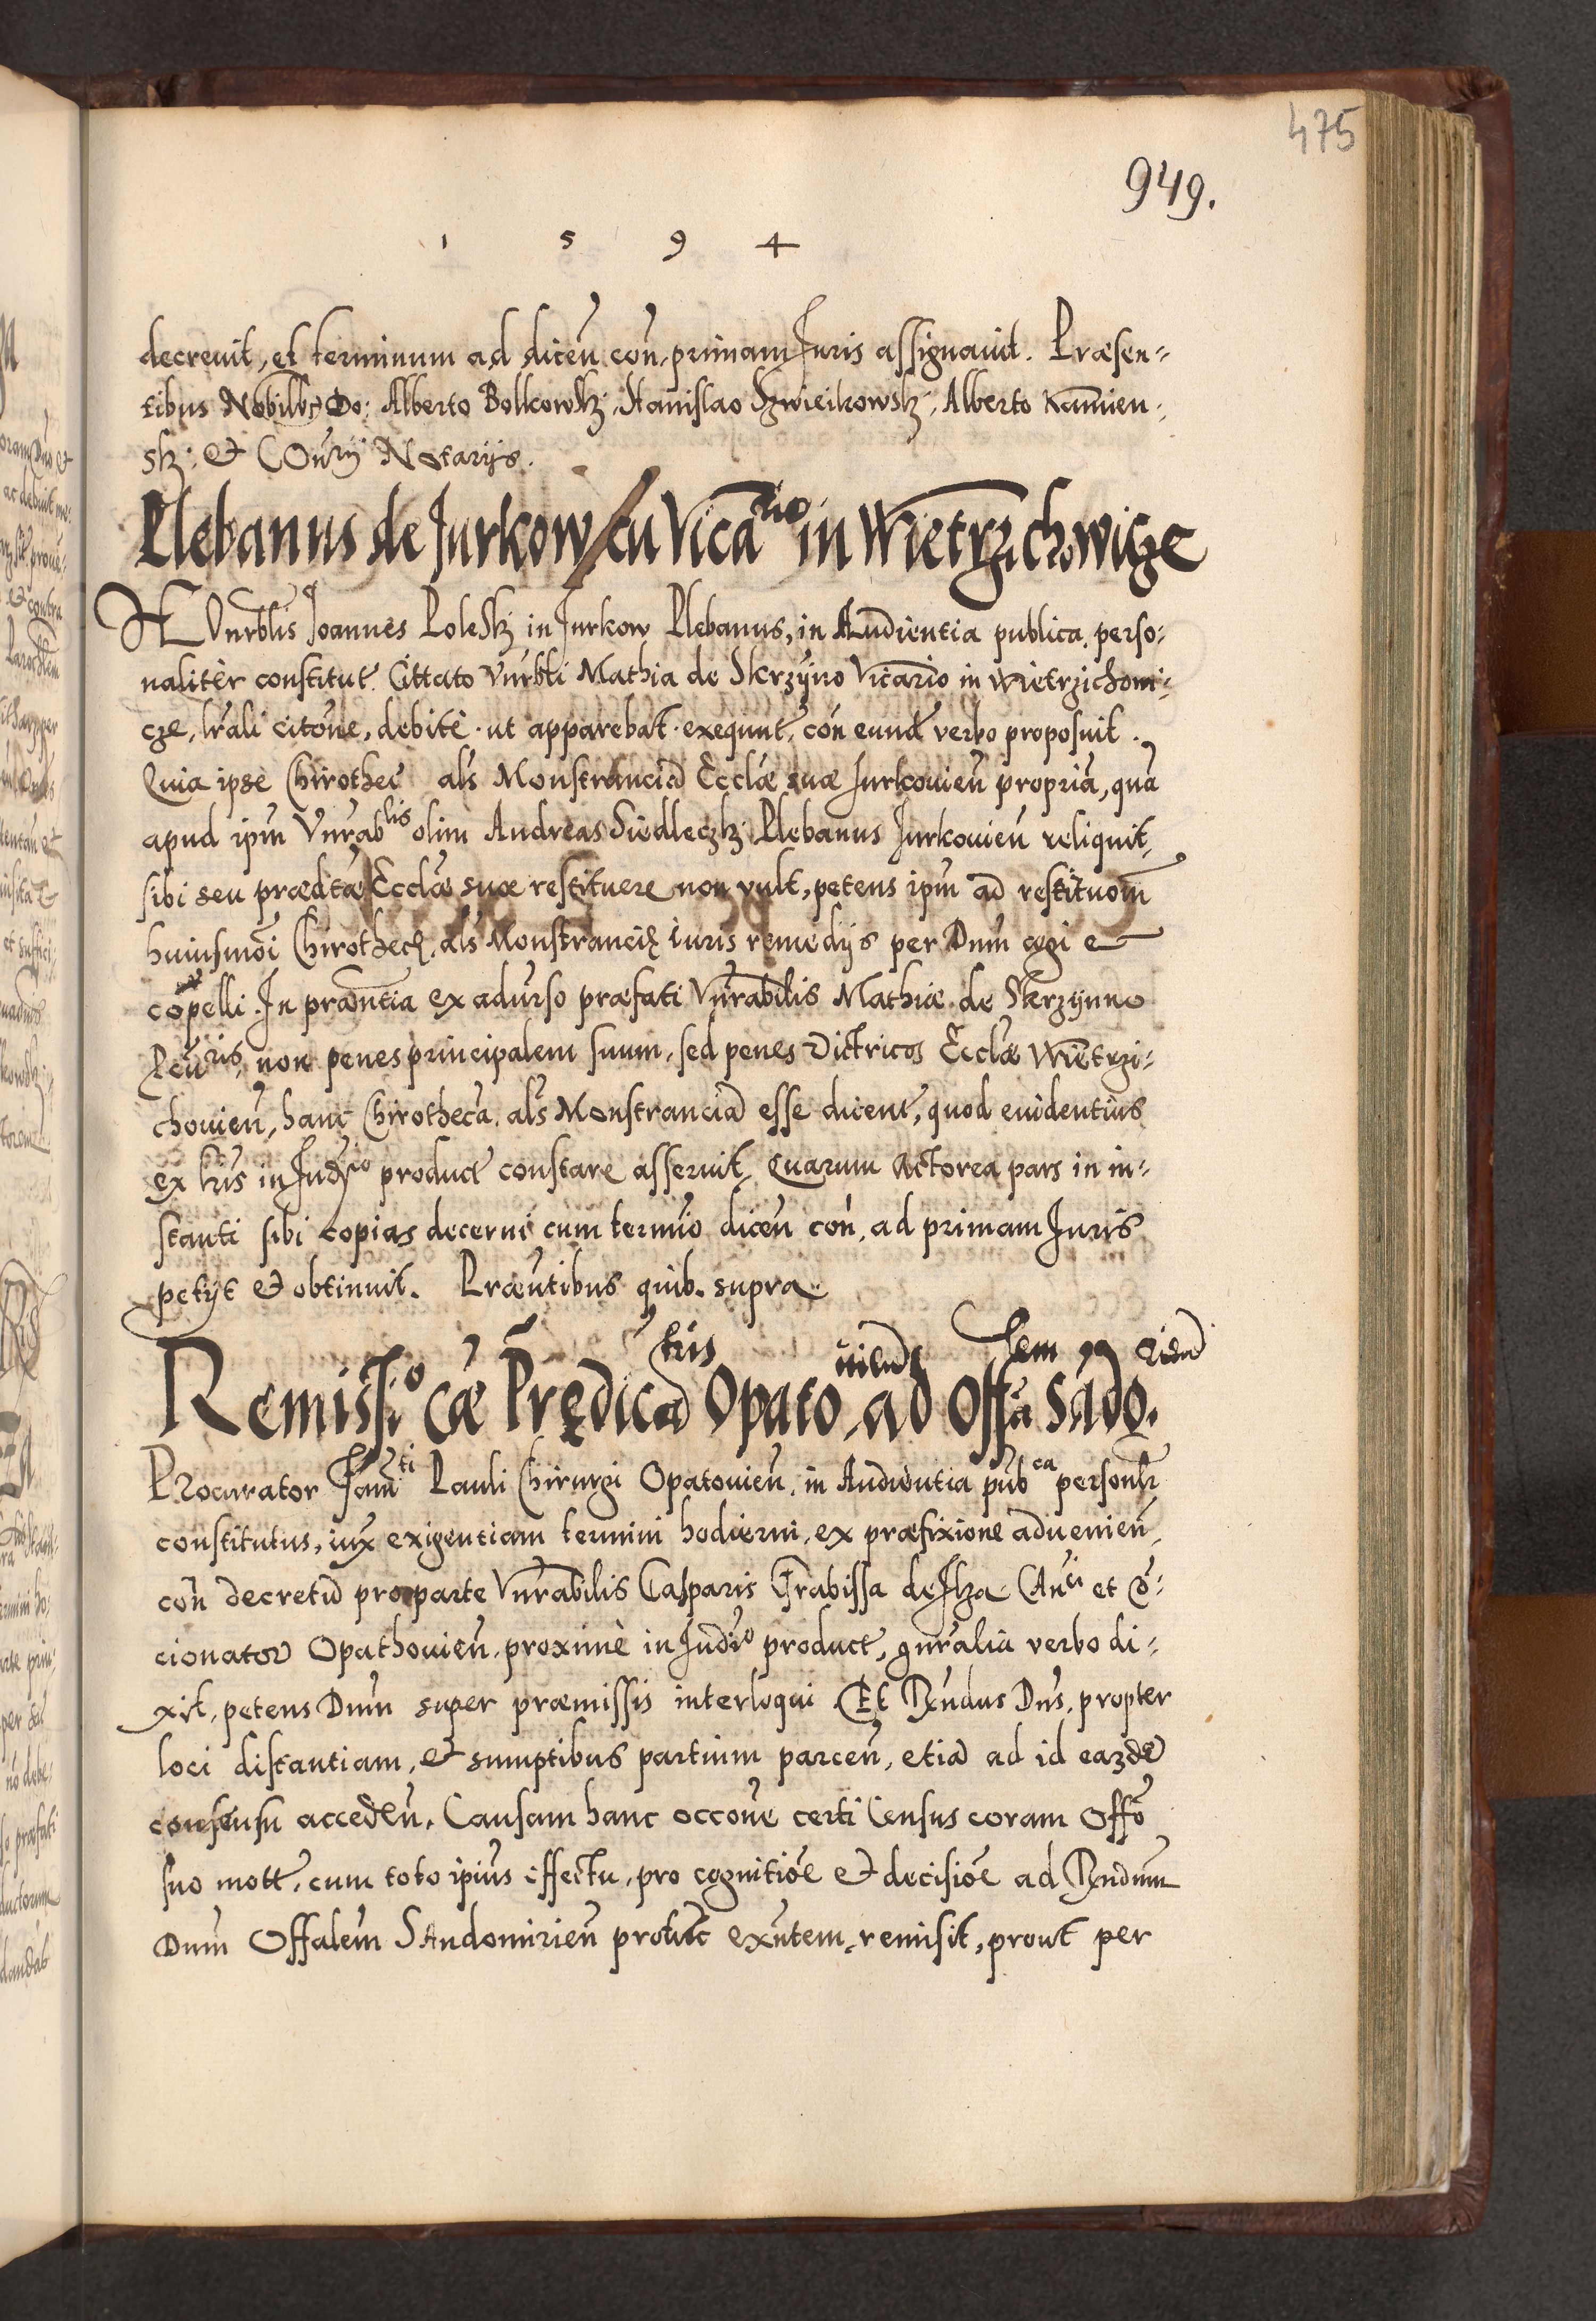 475
949.
1 5 9 4
decreuit, et terminum ad diceñ coñ. primam Iuris assignauit. Præsen-
tibus Nobilibȝ Do: Alberto Bolkowsk: Stanislao Szwieikowsk: Alberto Kamien-
sk: et Notarijs.
Plebanus de Jurkow cũ Vicario in Wietrzichowicze
Vnrblis Joannes Polesk: in Jurkow Plebanus, in Audientia publica perso-
naliter constitut. Cittato Vnrbli Mathia de Skrzÿno Vicario in Wietrzichowi-
cze, lr̃ali citõne, debitè ut apparebat exequut, coñ eund verbo proposuit.
Quia ipse Chirothec als Monstranciã Ecclæ suæ Jurkouieñ propriã, quã
apud ipm̃ Vnrablis olim Andreas Siedleczk: Plebanus Jurkouieñ reliquit,
sibi seu prædtæ Ecclæ suæ restituere non vult, petens ipm̃ ad restituom̃
huiusmõi Chirothecę als Monstrancię iuris remedijs per Dnm̃ cogi et
cõpelli. In præntia ex aduerso præfati Vnrabilis Mathiæ de Skrzÿnno
non penes principalem suum, sed penes Victricos Ecclæ Wietrzi-
chouieñ, hanc Chirothecã als Monstranciã esse dicent, quod euidentius
ex lris in Judicio product constare asseruit, Quarum Actorea pars in in-
stanti sibi copias decerni cum termĩo diceñ coñ, ad primam Iuris
petÿt et obtinuit. Præntibus quib. supra
Remissio cæ Prędicatris Opatouień ad Offlem Sãdo.
Procurator Fam̃ti Pauli Chirurgi Opatouieñ in Audientia pubca personlr
constitutus, iux exigentiam termini hodierni, ex præfixione aduenieñ,
coñ decretũ pro parte Vnrabilis Casparis Grabissa de Ilza et
cionator Opathouieñ proximè in Judio product, gnralia verbo di-
xit, petens Dnm̃ super præmissis interloqui Et Rñdus Dns, propter
loci distantiam, et sumptibus partium parceñ, etiã ad id
consensu accedeñ, Causam hanc occõne certi Census coram Offo
suo mott, cum toto ipius effectu, pro cognitiõe et decisiõe ad Rñdum
Dnm̃ Offalem SAndomirieñ protũc exñtem, remisit, prout per